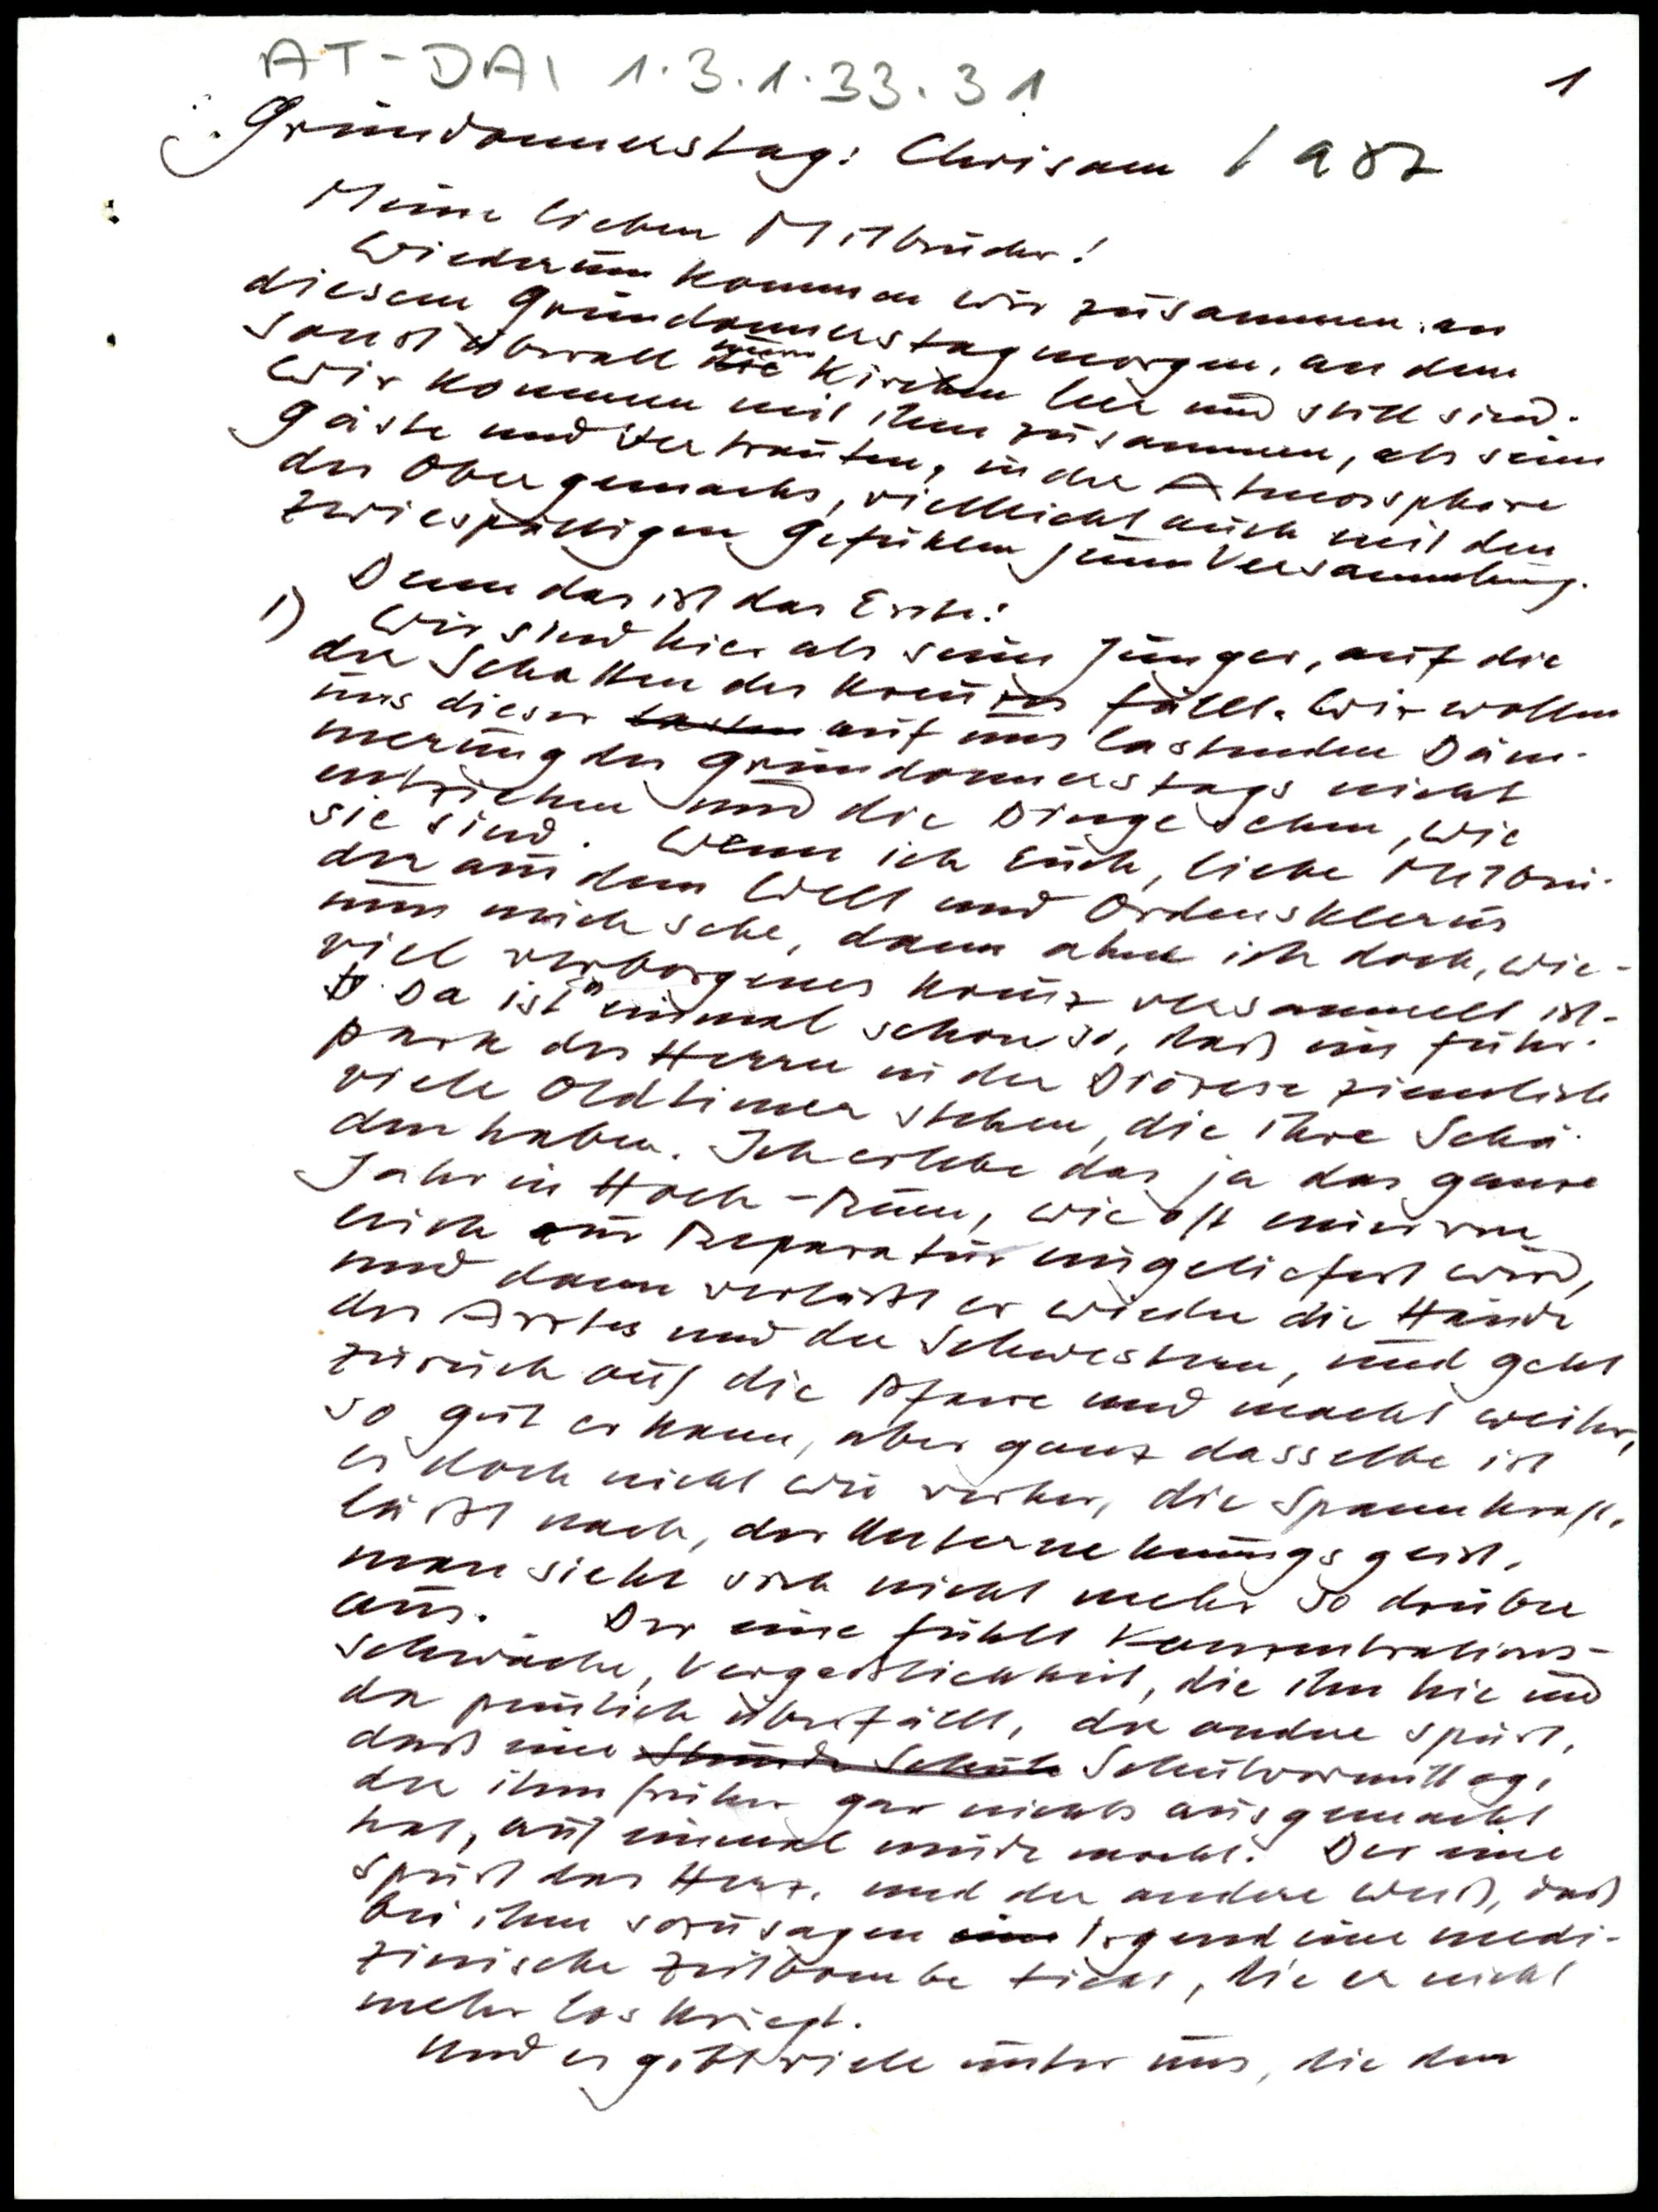 AT-DAI 1.3.1.33.31
1
Gründonnerstag: Chrisam 1987
Meine lieben Mitbrüder!
Wiederum kommen wir zusammen an
diesem Gründonnerstagmorgen, an dem
sonst überall die Kirchen leer und still sind.
Wir kommen mit ihm zusammen, als seine
Gäste und Vertrauten, in der Atmosphäre
des Obergemachs, vielleicht auch mit den
zwiespältigen Gefühlen jener Versammlung.
Denn das ist das Erste:
1) Wir sind hier als seine Jünger, auf die
der Schatten des Kreuzes fällt. Wir wollen
uns dieser lasten auf uns lastenden Däm-
merung des Gründonnerstags nicht
entziehen und die Dinge sehen, wie
sie sind. Wenn ich Euch, liebe Mitbrü-
der aus dem Welt und Ordensklerus
um mich sehe, dann ahne ich doch, wie-
viel verborgenes Kreuz versammelt ist.
Da ist einmal schon so, daß im Fuhr-
park des Herrn in der Diözese ziemlich
viele Oldtimer stehen, die ihre Schä-
den haben. Ich erlebe das ja das ganze
Jahr in Hoch-Rum, wie oft einer von
euch zur Reparatur eingeliefert wird,
und dann verläßt er wieder die Hände
des Arztes und der Schwestern, und geht
zurück auf die Pfarre und macht weiter,
so gut er kann, aber ganz dasselbe ist
es doch nicht wie vorher, die Spannkraft
läßt nach, der Unternehmungsgeist,
man sieht sich nicht mehr so drüber
aus. Der eine fühlt Konzentrations-
schwäche, Vergeßlichkeit, die ihn hie und
da peinlich überfällt, der andere spürt,
daß ein Stunde Schule Schulvormittag,
der ihm früher gar nichts ausgemacht
hat, auf einmal müde macht. Der eine
spürt das Herz, und der andere weiß, daß
bei ihm sozusagen eine irgend eine medi-
zinische Zeitbombe tickt, die er nicht
mehr los kriegt.
Und es gibt viele unter uns, die den